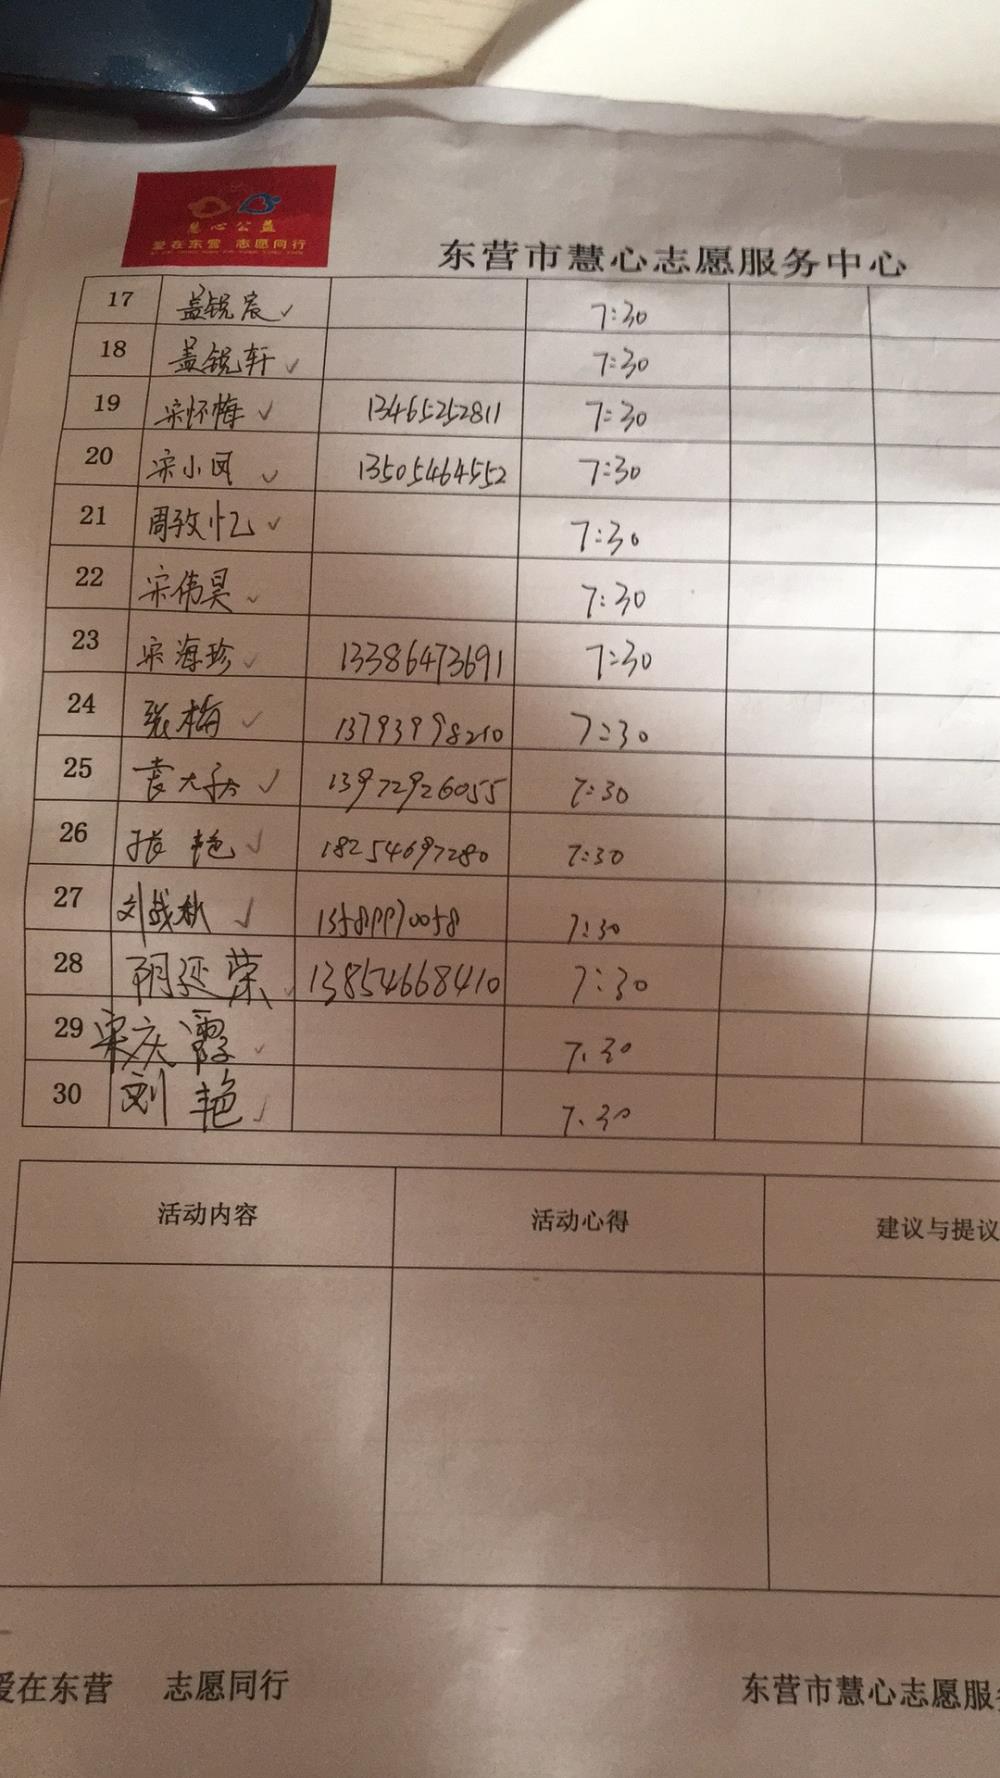 慧心公益
爱在东营 志愿同行
东营市慧心志愿服务中心
17 盖锐宸 ✓ 7:30
18 盖锐轩 ✓ 7:30
19 宋怀梅 ✓ 13465252811 7:30
20 宋小凤 ✓ 13505464552 7:30
21 周致忆 ✓ 7:30
22 宋伟昊 ✓ 7:30
23 宋海珍 ✓ 13386473691 7:30
24 张梅 ✓ 13793998210 7:30
25 袁 ✓ 13972926055 7:30
26 张艳 ✓ 18254697280 7:30
27 刘战秋 ✓ 13589970058 7:30
28 延荣 ✓ 13854668410 7:30
29 宋庆霞 ✓ 7.30
30 刘艳 ✓ 7.30
活动内容 活动心得 建议与提议
爱在东营 志愿同行 东营市慧心志愿服务